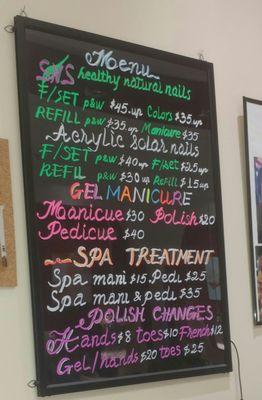 Menu
SNS healthy natural nails
F/SET p&w $45.up Colors $35.up
REFILL p&w $35.up Manicure $35
Acrylic Solar nails
F/SET p&w $40up F/set $25.up
REFILL p&w $30up Refill $15up
GEL MANICURE
Manicue $30 Polish $20
Pedicue $40
SPA TREATMENT
Spa mani $15. Pedi $25
Spa mani & pedi $35
POLISH CHANGES
Hands $8 toes $10 French $12
Gel/hands $20 toes $25